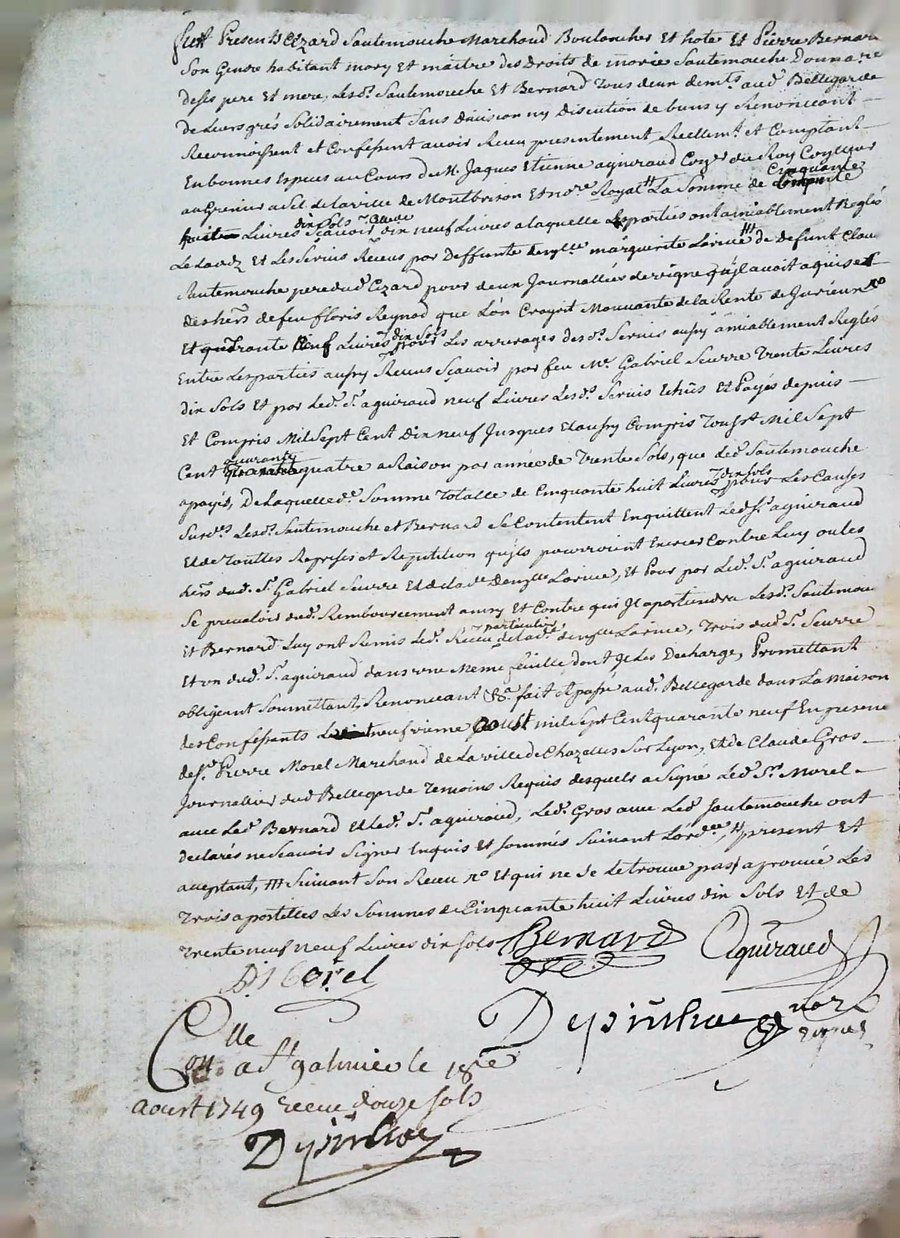 furt Presents Cezard Sautemouche Marchand Boulanger et hote et Pierre Bernard
Son Gendre habitant mary et maitre des Droits de marie Sautemouche Donnare
de ses pere et mere, Lesd. Sautemouche et Bernard Tous deux demts. aud. Bellegarde
de Leurs grés Solidairement Sans division ny Discution de biens y Renoncant
Reconnoissent et Confessent avoir Receu presentement Reellemt. et Comptant
En bonnes Especes au Cours du M. Jaques Etienne aguiraud Coner. du Roy
au Grenier a Sel de la ville de Montbrison et nore. Royal La Somme de Cinquante
huit Livres dix Sols Scavoir dix neuf Livres a laquelle Les parties ont amiablement Reglés
Le Laodz et Les Servis Receus par Deffunte demlle. marguerite Larue /// de Defunt Claude
Sautemouche pere dud. Cezard pour deux Journalliés de vigne qu'jl avoit aquise
des hers. de feu floris Reynod que L'on Croyoit Mouvante de la Rente de Jurieux
Et quarante neuf Livres dix Sols pour Les arrerages des. Servis aussy amiablement Reglés
Entre Les parties aussy Receus Scavoir par feu Mr. Gabriel Seurre Trente Livres
dix Sols et par Led. Sr. aguiraud neuf Livres Lesd. Servis Echus et Payés depuis
Et Compris Mil Sept Cent Dix neuf Jusques et aussy Compris Toussts. Mil Sept
Cent quarante quatre a Raison par année de Trente Sols, que Led. Sautemouche
a payés, De Laquelle d. Somme Totalle de Cinquante huit Livres dix Sols pour Les Causes
Susd. Lesd. Sautemouche et Bernard Se Contentent Enquittent Led. Sr. aguiraud
Et de Touttes Reprises et Repetition qu'jls pourroient Exercer Contre Luy ou les
hers. dud. Sr. Gabriel Seurre Et de lad. Demlle Larue, et Pour par Led. Sr. aguiraud
Se prevaloir dud. Remboursement ainsy et Contre qui Jl apartiendra Lesd. Sautemouche
Et Bernard Luy ont Remis Led. Receu particulier de lade. demlle Larue, Trois dud. Sr. Seurre
Et un dud. Sr. aguiraud dans une meme feuille dont Jl Les Decharge, Promettant
obligeant Soumettant Renonceant &a. fait et passé aud. Bellegarde dans La maison
des Confessants Le neufvieme Aoust mil Sept Cent quarante neuf En presence
de Sr. Pierre Morel Marchand de La ville de Chazelles Sur Lyon, et de Claude Gros
Journallier dud. Bellegarde Temoins Requis desquels a Signé Led. Sr. Morel
avec Led. Bernard Et Led. Sr. aguiraud, Led. Gros avec Led. Sautemouche ont
declarés ne Scavoir Signer Enquis et Sommés Suivant Lordce, // present et
acceptant, /// Suivant Son Receu Et qui ne Se trouve pas, aprouvé Les
Trois apostilles Les Sommes de Cinquante huit Livres dix Sols et de
Trente neuf neuf Livres dix Sols Bernard Aguiraud
Morel
Con lle a St galmier le 18me
Aoust 1749 Receu douze Sols